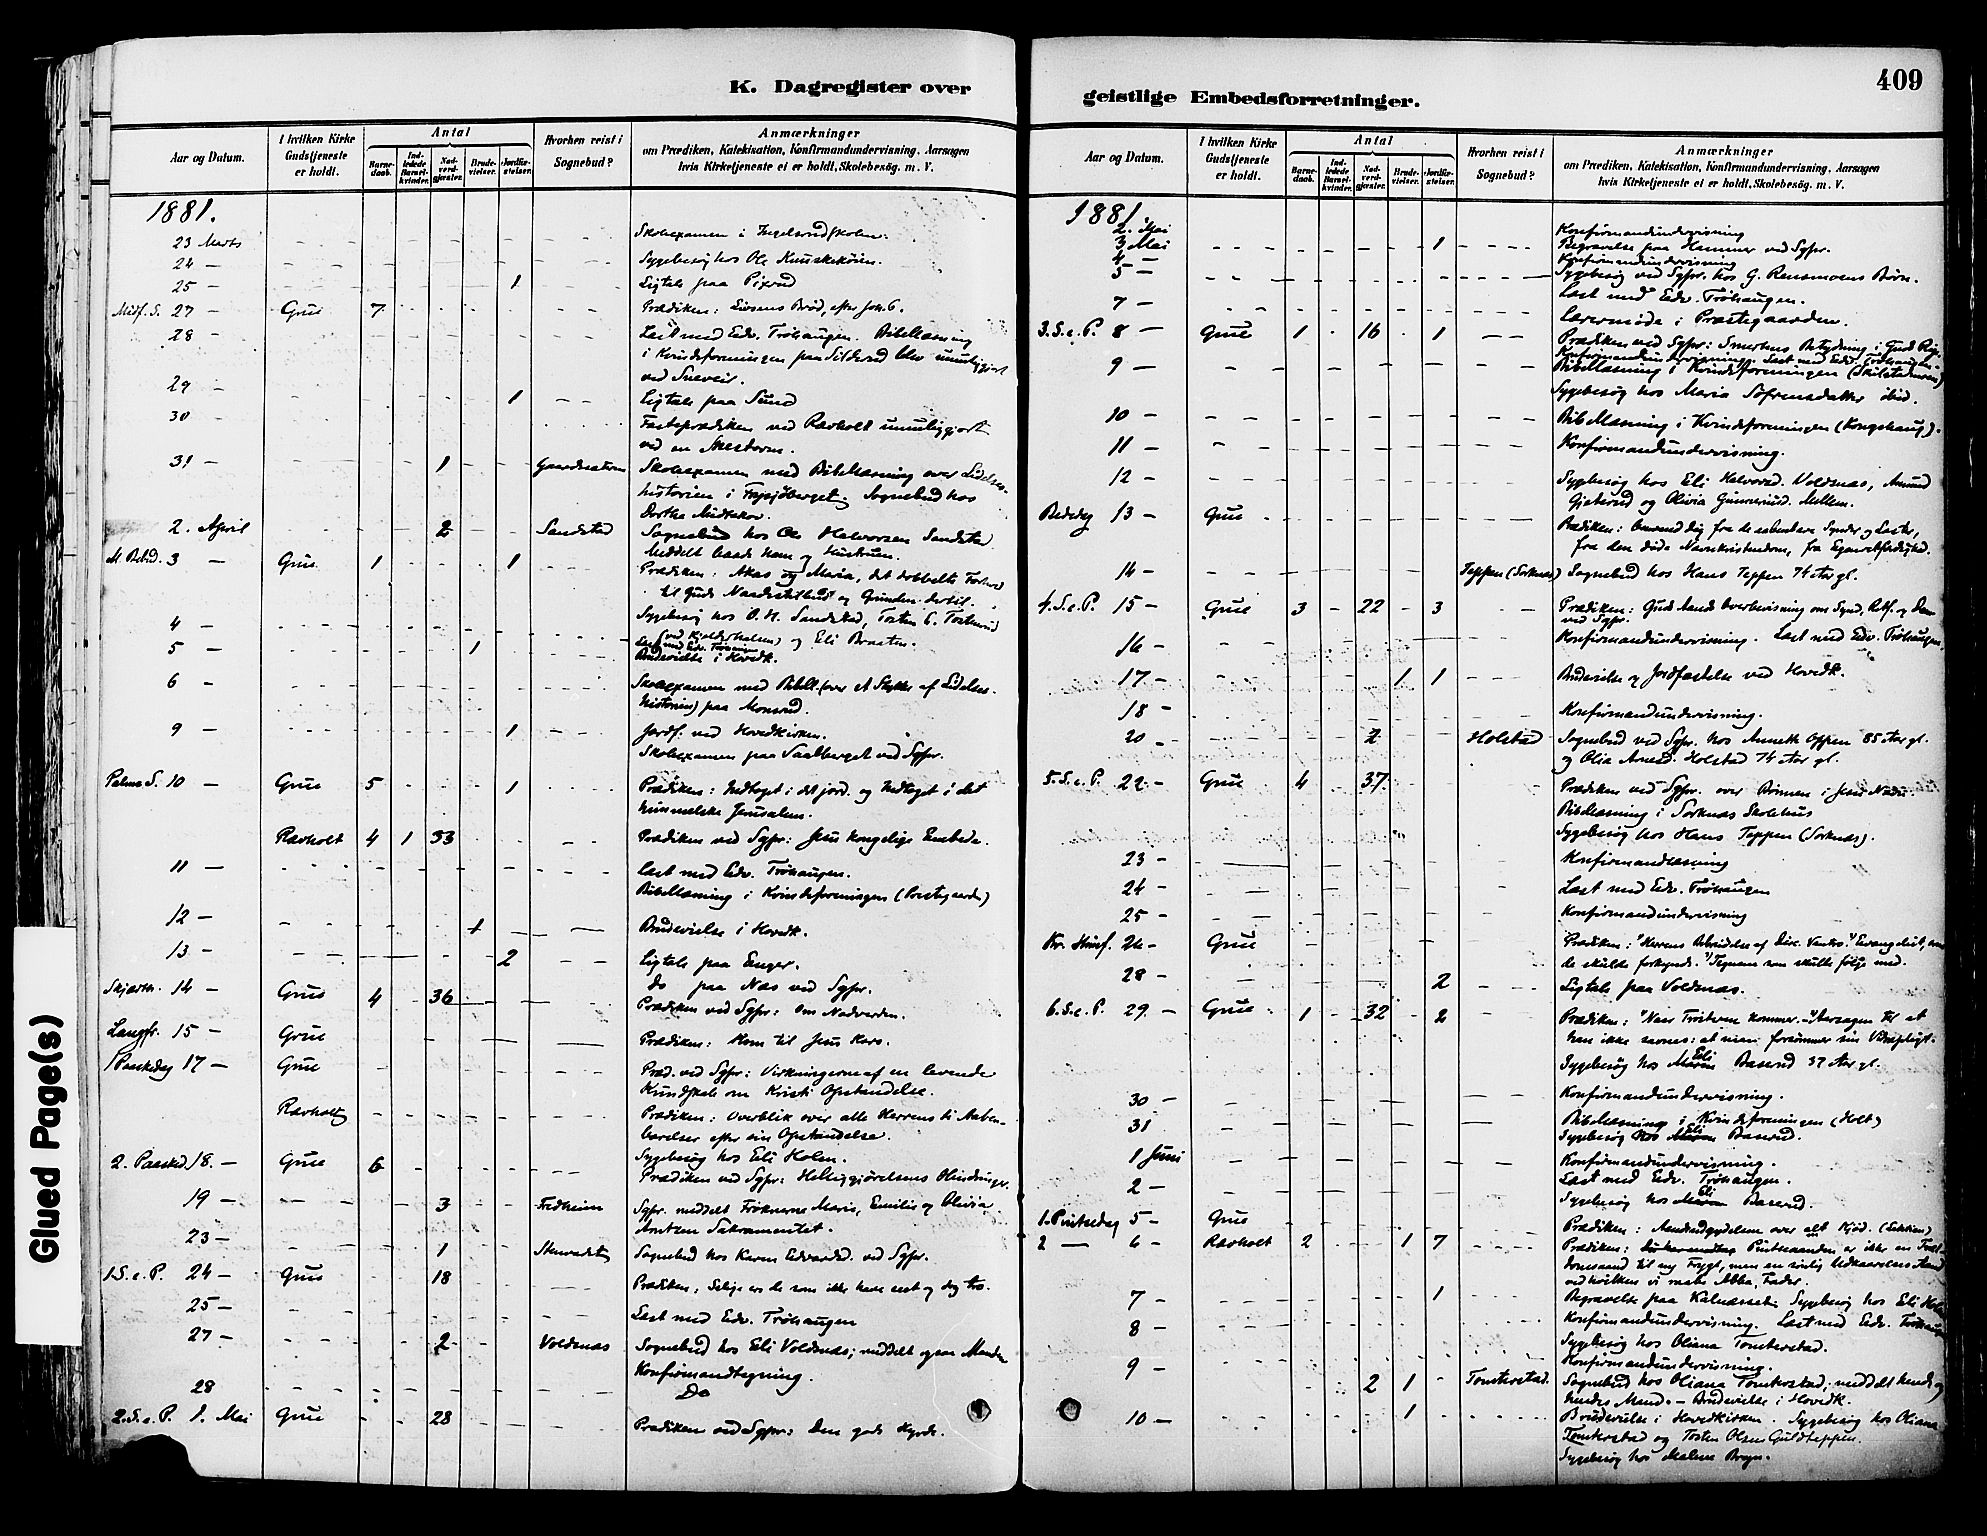 K. Dagregister over
Aar og Datum.
I hvilken Kirke Gudstjeneste er holdt.
Antal
Barnedaab.
Indledede Barselkvinder.
Nadverdgjæster.
Brudevielser.
Jordfæstelser.
Hvorhen reist i Sognebud?
Anmærkninger
om Prædiken, Katekisation, Konfirmandundervisning, Aarsagen
hvis Kirketjeneste ei er holdt, Skolebesög. m. V.
1881.
23 Marts Skolexamen i
24 — Sygebesög hos Ole
25 — 1 Ligtale paa
Midf. S. 27 — Grue 7 Prædiken: Livsens Bröd, efter Joh. 6.
28 — Læst med Edv. Tröhaugen. Bibellæsning
i Kvindeforeningen paa blev umuliggjort
ved Sneveir.
29 — 1 Ligtale paa Sund
30 — Fasteprædiken ved Rævholt umuliggjort
ved en Snestorm.
31 — 1 Skolexamen med Bibellæsning over Lidelses-
historien i Sognebud hos
Dorthe
2. April 2 Sandstad Sognebud hos Ole Halvorsen Sandstad.
Meddelt baade ham og Hustruen.
M. Bebud. 3 — Grue 1 1 Prædiken: og Maria, det dobbelte
til Guds og Grunden dertil.
4 — Sygebesög hos O. H. Sandstad, Torsten
og Eli Braaten.
5 — 1 Læst med Edv. Tröhaugen
Brudevielse i Hovedk.
6 — Skolexamen med Bibell. (over et Stykke af Lidelses-
historien) paa
9 — 1 Jordf. ved Hovedkirken.
Skolexamen paa Saalberget ved Sgpr.
Palme S. 10 — Grue 5 1 Prædiken: Indtoget i det jord. og Indtoget i det
himmelske Jerusalem.
Rævholt 4 1 33 Prædiken ved Sgpr: Jesu kongelige Embede.
11 — Læst med Edv. Tröhaugen.
Bibellæsning i Kvindeforeningen (Prestegaarden)
12 — 1 Brudevielse i Hovedk.
13 — 2 Ligtale paa Enger.
do paa Næs ved Sgpr.
Skjærtor. 14 — Grue 4 36 Prædiken ved Sgpr: Om Nadverden.
Langfr. 15 — Grue Prædiken: Kom til Jesu Kors.
1 Paaskedag 17 — Grue Præd. ved Sgpr: Virkningerne af en levende
Kundskab om Kristi Opstandelse.
Rævholt Prædiken: Overblik over alle Herrens ti Aaben-
barelser efter sin Opstandelse.
2. Paasked. 18. — Grue 6 Sygebesög hos Eli Holen.
Prædiken ved Sgpr: Helliggjörelsens Hindringer.
19 — 3 Fredheim Sgpr. meddelt Fröknerne Marie, Emilie og Olivia
Arntzen Sakramentet.
23 — 1 Sognebud hos Karen Edvardsd. ved Sgpr.
1. S. e. P. 24 — Grue 18 Prædiken: Salige ere de som ikke have seet og dog tro.
25 — Læst med Edv. Tröhaugen
27 — 2 Voldnæs Sognebud hos Eli Voldnæs; meddelt ogsaa Manden
Konfirmandtegning.
28 Do
2. S. e. P. 1. Mai Grue 28 Prædiken ved Sgpr: Den gode Hyrde.
Glued Page(s)
geistlige Embedsforretninger.
409
Aar og Datum.
I hvilken Kirke Gudstjeneste er holdt.
Antal
Barnedaab.
Indledede Barselkvinder.
Nadverdgjæster.
Brudevielser.
Jordfæstelser.
Hvorhen reist i Sognebud?
Anmærkninger
om Prædiken, Katekisation, Konfirmandundervisning, Aarsagen
hvis Kirketjeneste ei er holdt, Skolebesög. m. V.
1881.
2. Mai Konfirmandundervisning
3 Mai 1 Begravelse paa Hammer ved Sgpr.
4 — Konfirmandundervisning
5 — Sygebesög ved Sgpr. hos G. Rensmoens Börn.
Læst med Edv. Tröhaugen.
7 — Lærermöde i Præstegaarden.
3. S. e. P. 8 — Grue 1 16 1 Prædiken ved Sgpr: Smertens Betydning i Guds Rige.
9 — Konfirmandundervisning. Læst med Edv. Tröhaugen.
Bibellæsning i Kvindeforeningen
Sygebesög hos Maria Sörensdatter ibid.
10 — Bibellæsning i Kvindeforeningen (Kongshaug).
11 — Konfirmandundervisning.
12 — Sygebesög hos Eli Halvorsd. Voldnæs, Amund
og Olivia
Bededag 13 — Grue Prædiken: Omvend dig fra de aabenbare Synder og Laster,
fra den döde Navnkristendom, fra Egenretfærdighed.
14 — Teppen (Sorknæs) Sognebud hos Hans Teppen 74 Aar gl.
4. S. e. P. 15 — Grue 3 22 3 Prædiken: Guds Aands Overbevisning om Synd, Retf. og Dom
ved Sgpr.
16 — Konfirmandundervisning. Læst med Edv. Tröhaugen.
17 — 1 1 Brudevielse og Jordfæstelse ved Hovedk.
18 — Konfirmandundervisning.
20 — 2 Holstad Sognebud ved Sgpr. hos Annette Oppen 85 Aar gl.
og Olia Arnesd. Holstad 74 Aar gl.
5. S. e. P. 22. — Grue 4 37. Prædiken ved Sgpr. over Bönnen i Jesu Navn.
Bibellæsning i Sorknæs Skolehus
Sygebesög hos Hans Teppen (Sorknæs).
23 — Konfirmandlæsning
24 — Læst med Edv. Tröhaugen
25 — Konfirmandundervisning
Kr. Himf. 26 — Grue Prædiken: Herrens
de skulde forkynde. Tegnene som skulde fölge med.
28 — 2 Ligtale paa Voldnæs.
6. S. e. P. 29. — Grue 1 32 2 Prædiken: Naar Trösteren kommer. — Aarsagen til at
han ikke savnes: at man forsömmer sin
Sygebesög hos Eli Baserud 37 Aar gl.
30 — Konfirmandundervisning.
31 Bibellæsning i Kvindeforeningen (Holt)
Sygebesög hos Eli Baserud.
1 Juni Konfirmandundervisning.
2 — Læst med Edv. Tröhaugen.
Sygebesög hos Eli Baserud.
1. Pintsedag 5 — Grue Prædiken: Aandsudgydelsen over alt Kjöd. (Lektien)
2 — 6 — Rævholt 2 1 7 Prædiken: Pintseaanden er ikke en Træl-
domsaand til ny Frygt, men en sönlig Udkaarelses Aand
ved hvilken vi raabe Abba, Fader.
7 — 1 Begravelse paa Kalnæsset. Sygebesög hos Eli
8 — Konfirmandundervisning. Læst med Edv. Tröhaugen
Sygebesög hos Oliana Tomterstad.
9 — Konfirmandundervisning.
2 1 Tomterstad. Sognebud hos Oliana Tomterstad; meddelt hende og
hendes Mand. — Brudevielse i Hovedk.
10 — 1 Brudevielse i Hovedkirken. Sygebesög hos Oliana
Tomterstad og Torsten Olsen Guldteppen.
Sygebesög hos Malene